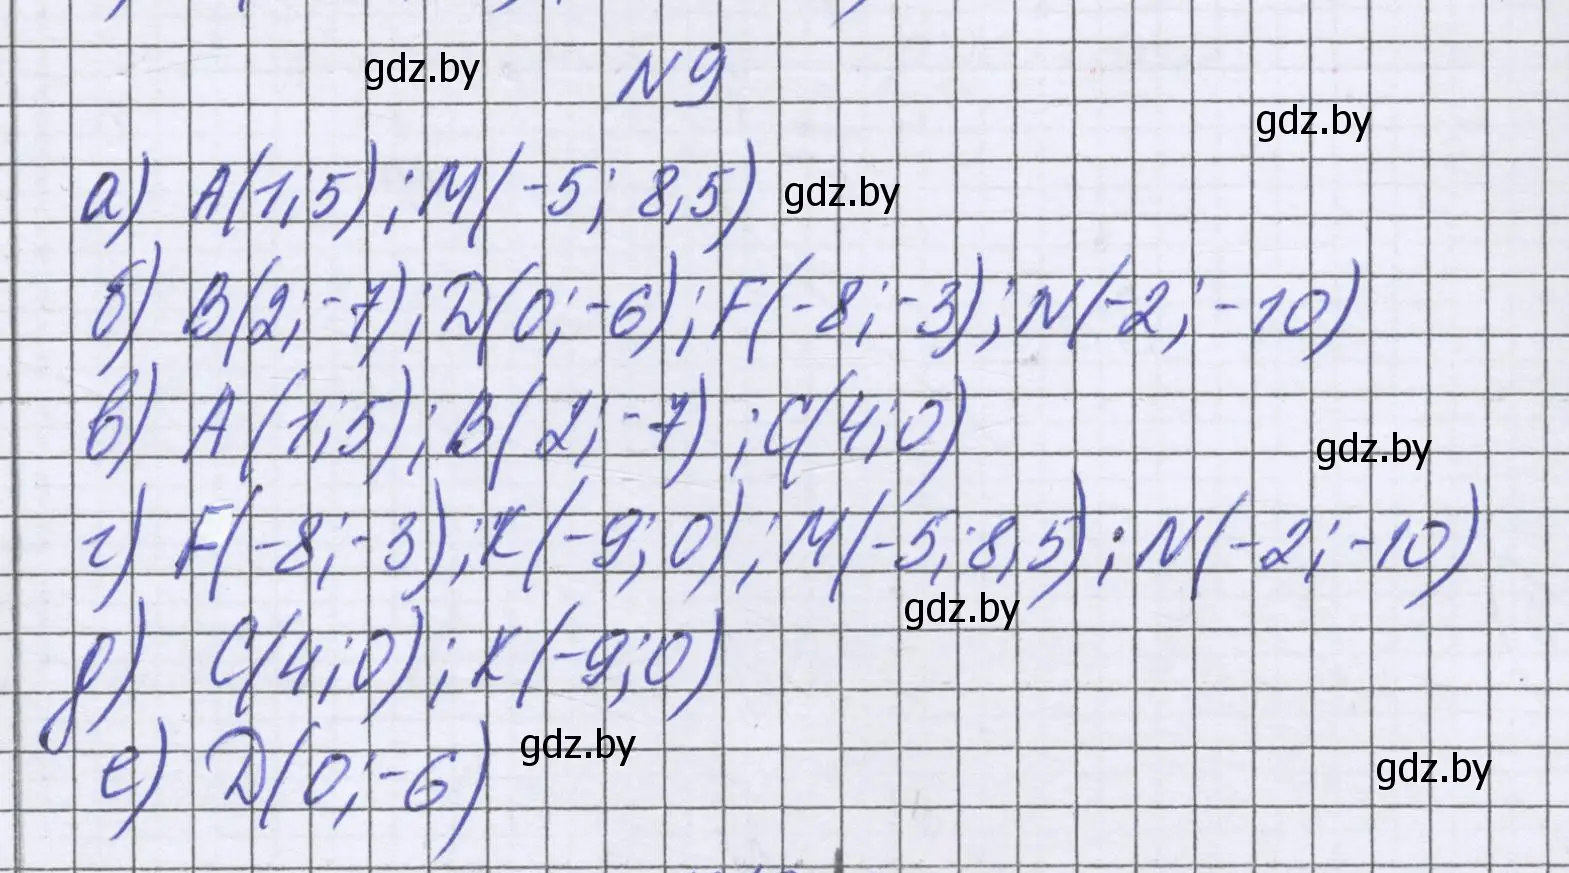 gdz.by
N 9
gdz.by
а) A(1;5); M(-5; 8,5) gdz.by
б) B(2;-7); D(0;-6); F(-8;-3); N(-2;-10)
в) A(1;5); B(2;-7); C(4;0)
gdz.by
г) F(-8;-3); K(-9;0); M(-5;8,5); N(-2;-10)
gdz.by
д) C(4;0); K(-9;0)
е) D(0;-6) gdz.by
gdz.by